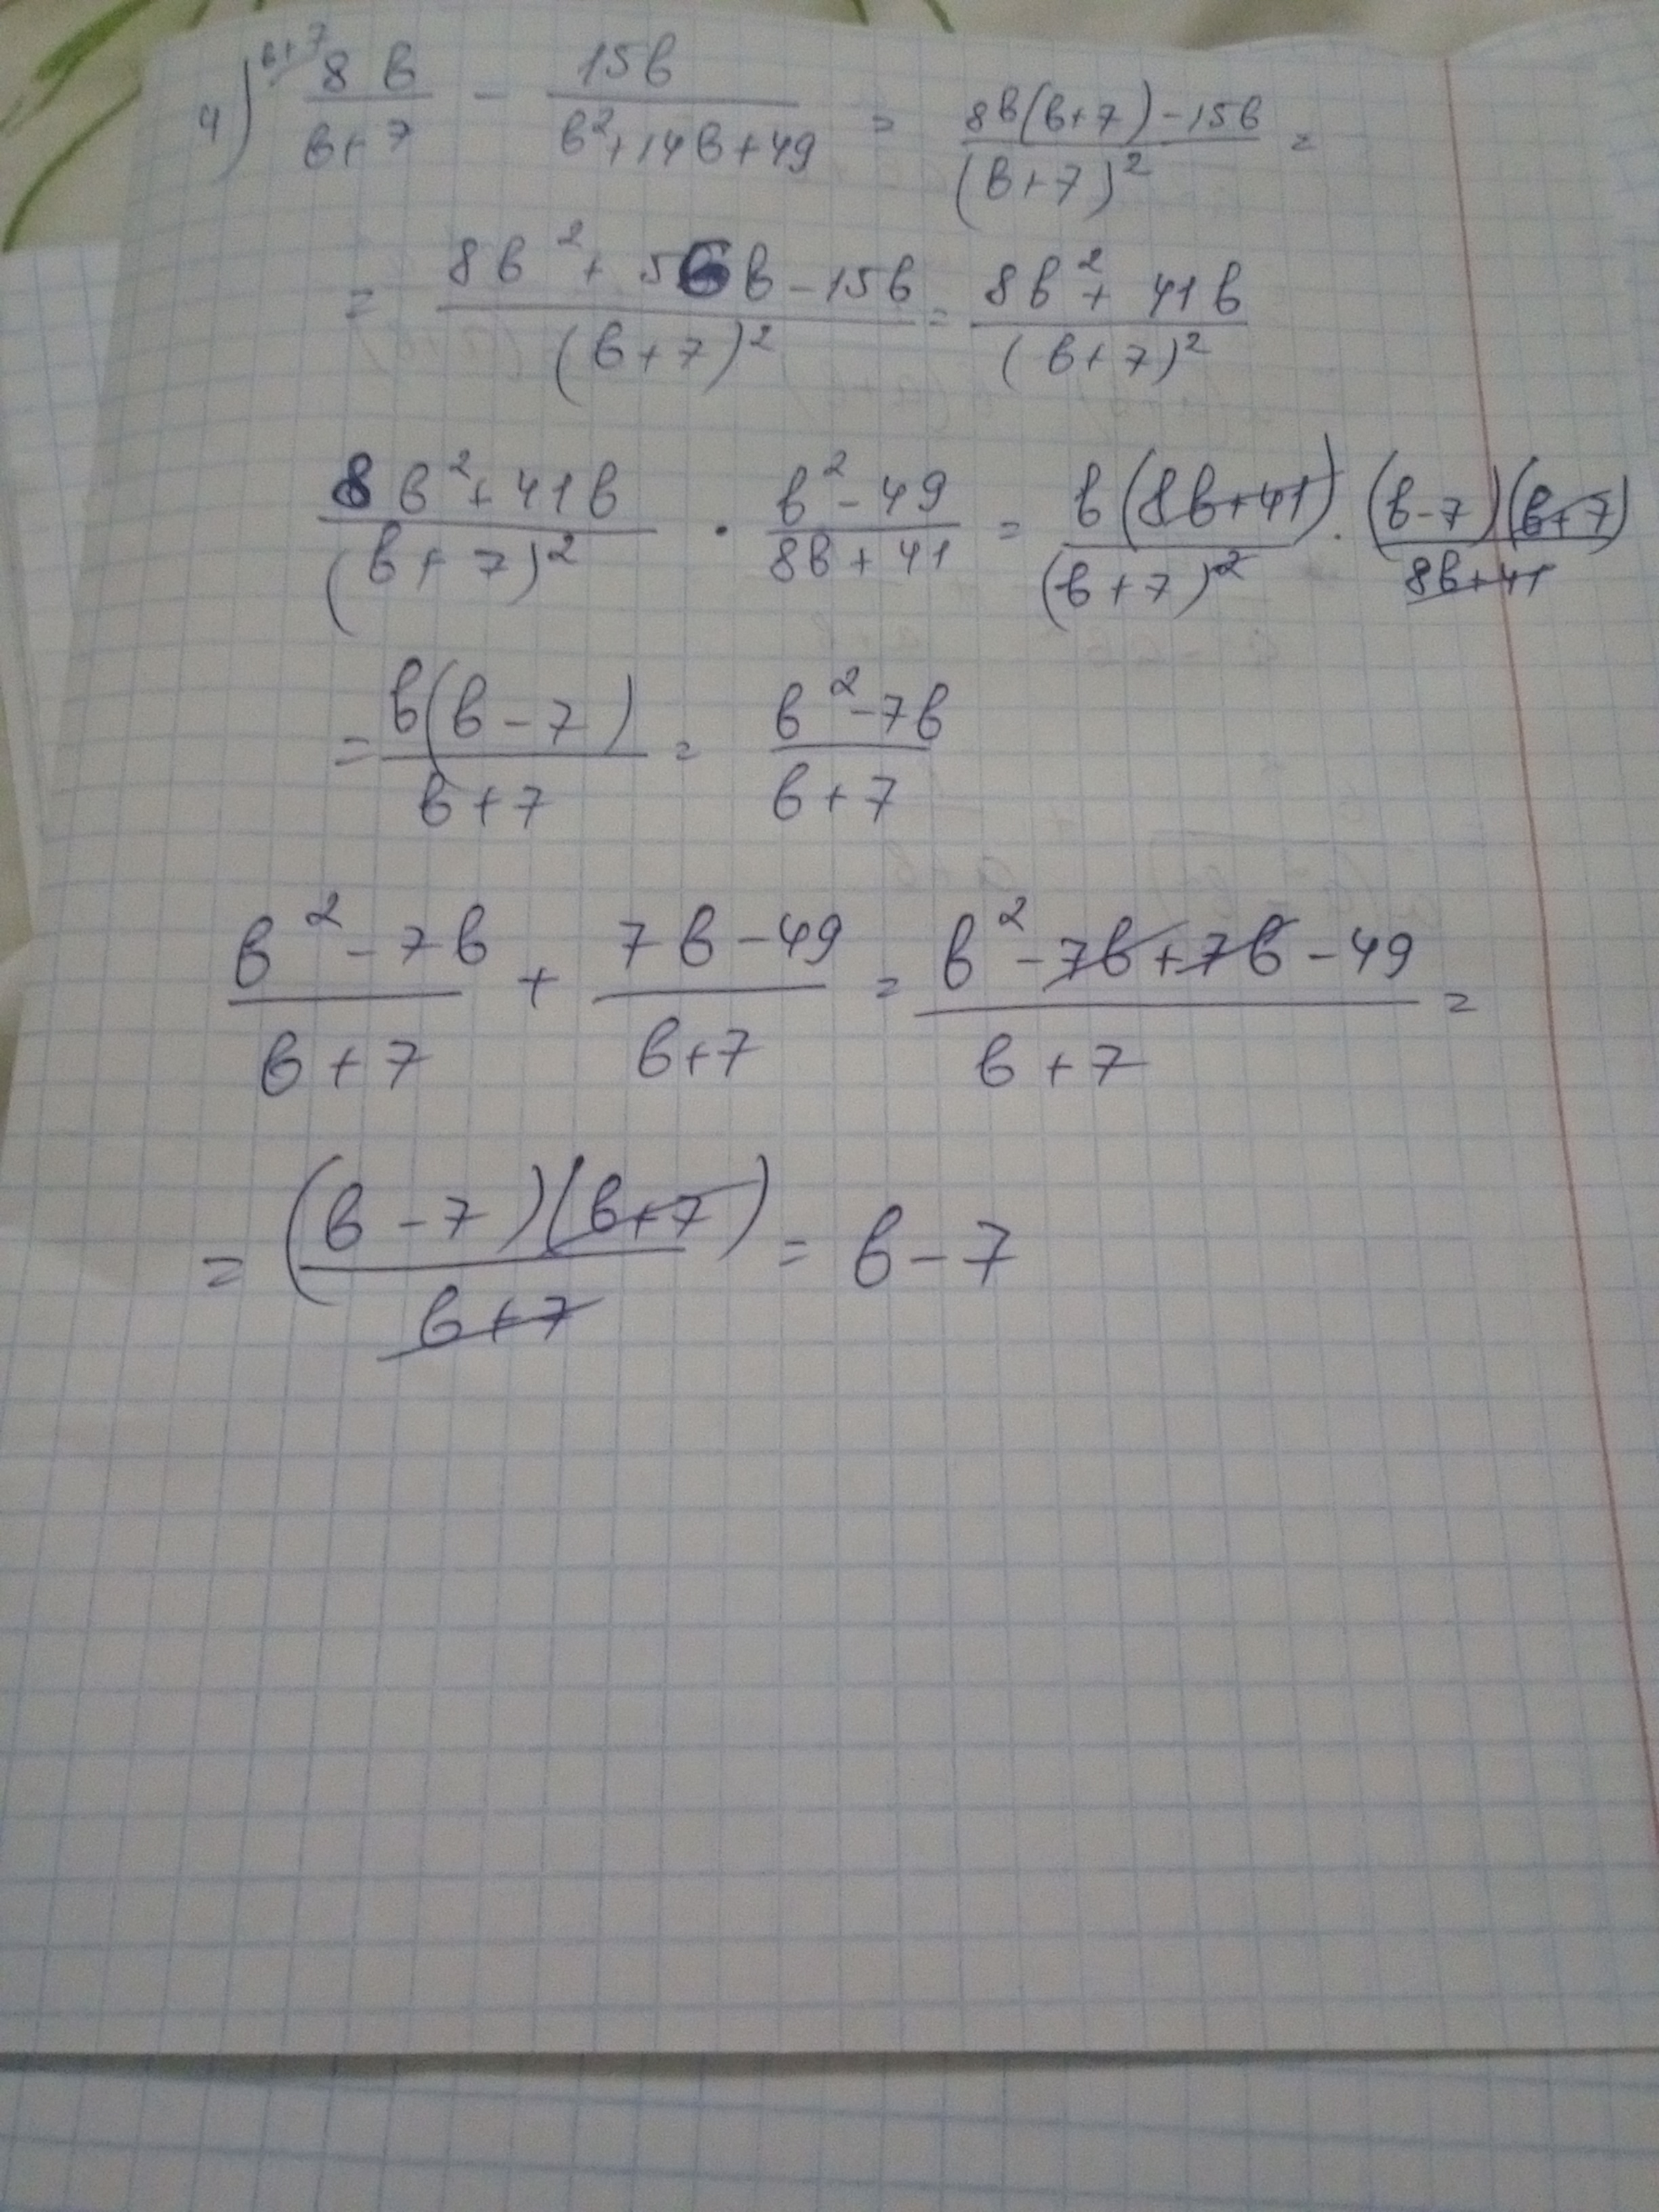 4) b+7/ 8b/(b+7) - 15b/(b²+14b+49) = (8b(b+7)-15b)/(b+7)² =
= (8b²+56b-15b)/(b+7)² = (8b²+41b)/(b+7)²
(8b²+41b)/(b+7)² · (b²-49)/(8b+41) = b(8b+41)/(b+7)² · (b-7)(b+7)/(8b+41)
= b(b-7)/(b+7) = (b²-7b)/(b+7)
(b²-7b)/(b+7) + (7b-49)/(b+7) = (b²-7b+7b-49)/(b+7) =
= (b-7)(b+7)/(b+7) = b-7